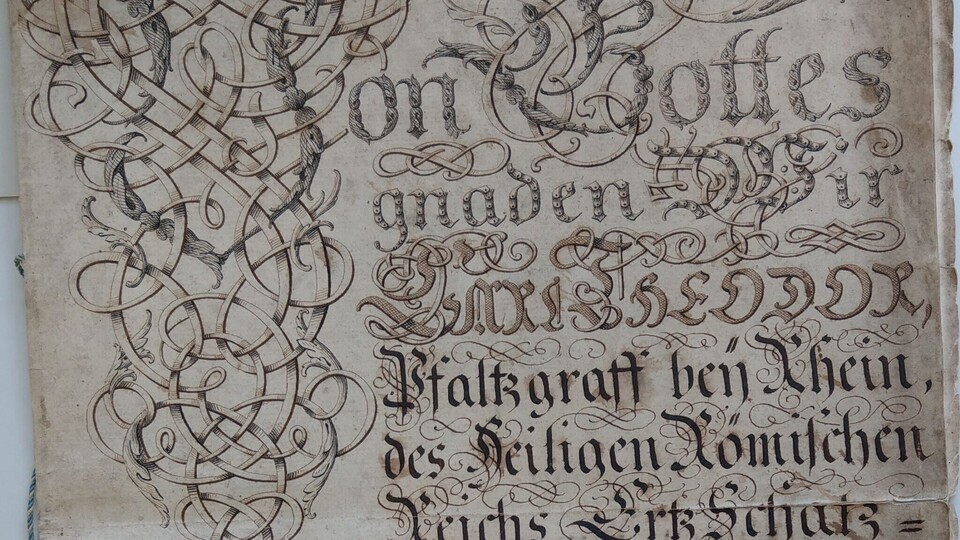 on Gottes
gnaden Wir
CARL THEODOR,
Pfaltzgraff beÿ Rhein,
des Heiligen Römischen
Reichs Ertz Schatz =